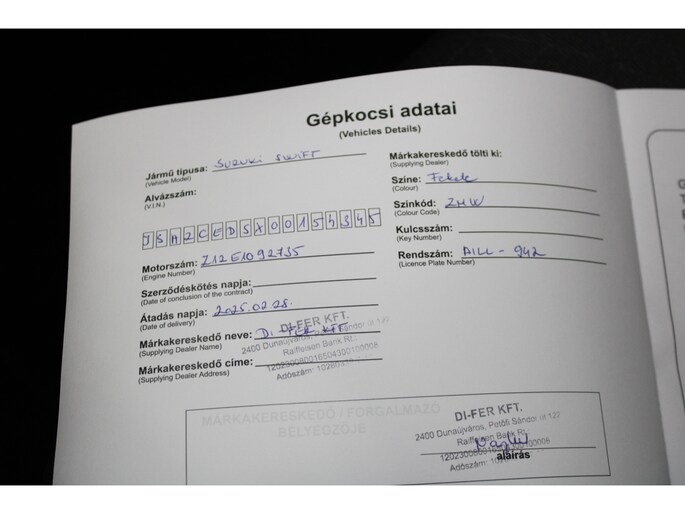 Gépkocsi adatai
(Vehicles Details)
Jármű típusa: SUZUKI SWIFT
(Vehicle Model)
Alvázszám:
(V.I.N.)
JSA2CEDSX00154345
Motorszám: Z12E1092735
(Engine Number)
Szerződéskötés napja:
(Date of conclusion of the contract)
Átadás napja: 2025.02.28.
(Date of delivery)
Márkakereskedő neve: DI-FER KFT
(Supplying Dealer Name)
Márkakereskedő címe:
(Supplying Dealer Address)
DI-FER KFT.
2400 Dunaújváros, Petőfi Sándor út 120
Raiffeisen Bank Rt.:
120230080016504300100006
Adószám:
Márkakereskedő tölti ki:
(Supplying Dealer)
Színe: Fekete
(Colour)
Színkód: ZMW
(Colour Code)
Kulcsszám:
(Key Number)
Rendszám: AILL-942
(Licence Plate Number)
MÁRKAKERESKEDŐ / FORGALMAZÓ
BÉLYEGZŐJE
DI-FER KFT.
2400 Dunaújváros, Petőfi Sándor út 120
Raiffeisen Bank Rt.
120230080016504300100006
Adószám:
aláírás